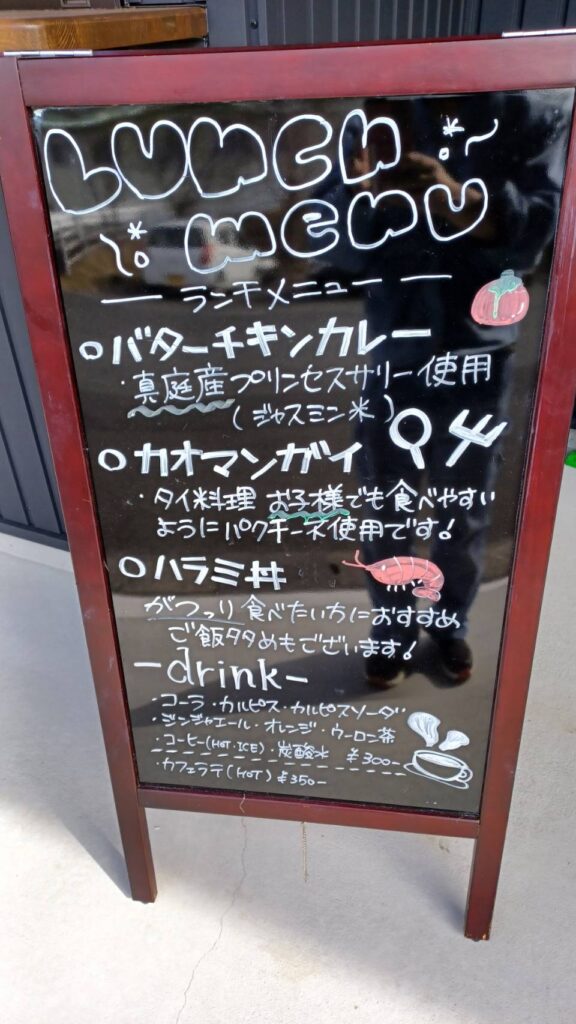 LUNCH
menu
ランチメニュー
○バターチキンカレー
・真庭産プリンセスサリー使用
(ジャスミン米)
○カオマンガイ
・タイ料理 お子様でも食べやすい
ようにパクチー不使用です!
○ハラミ丼
がっつり食べたい方におすすめ
ご飯多めもございます!
-drink-
・コーラ・カルピス・カルピスソーダ
・ジンジャエール・オレンジ・ウーロン茶
・コーヒー(HOT・ICE)・炭酸水 ¥300-
・カフェラテ(HOT) ¥350-